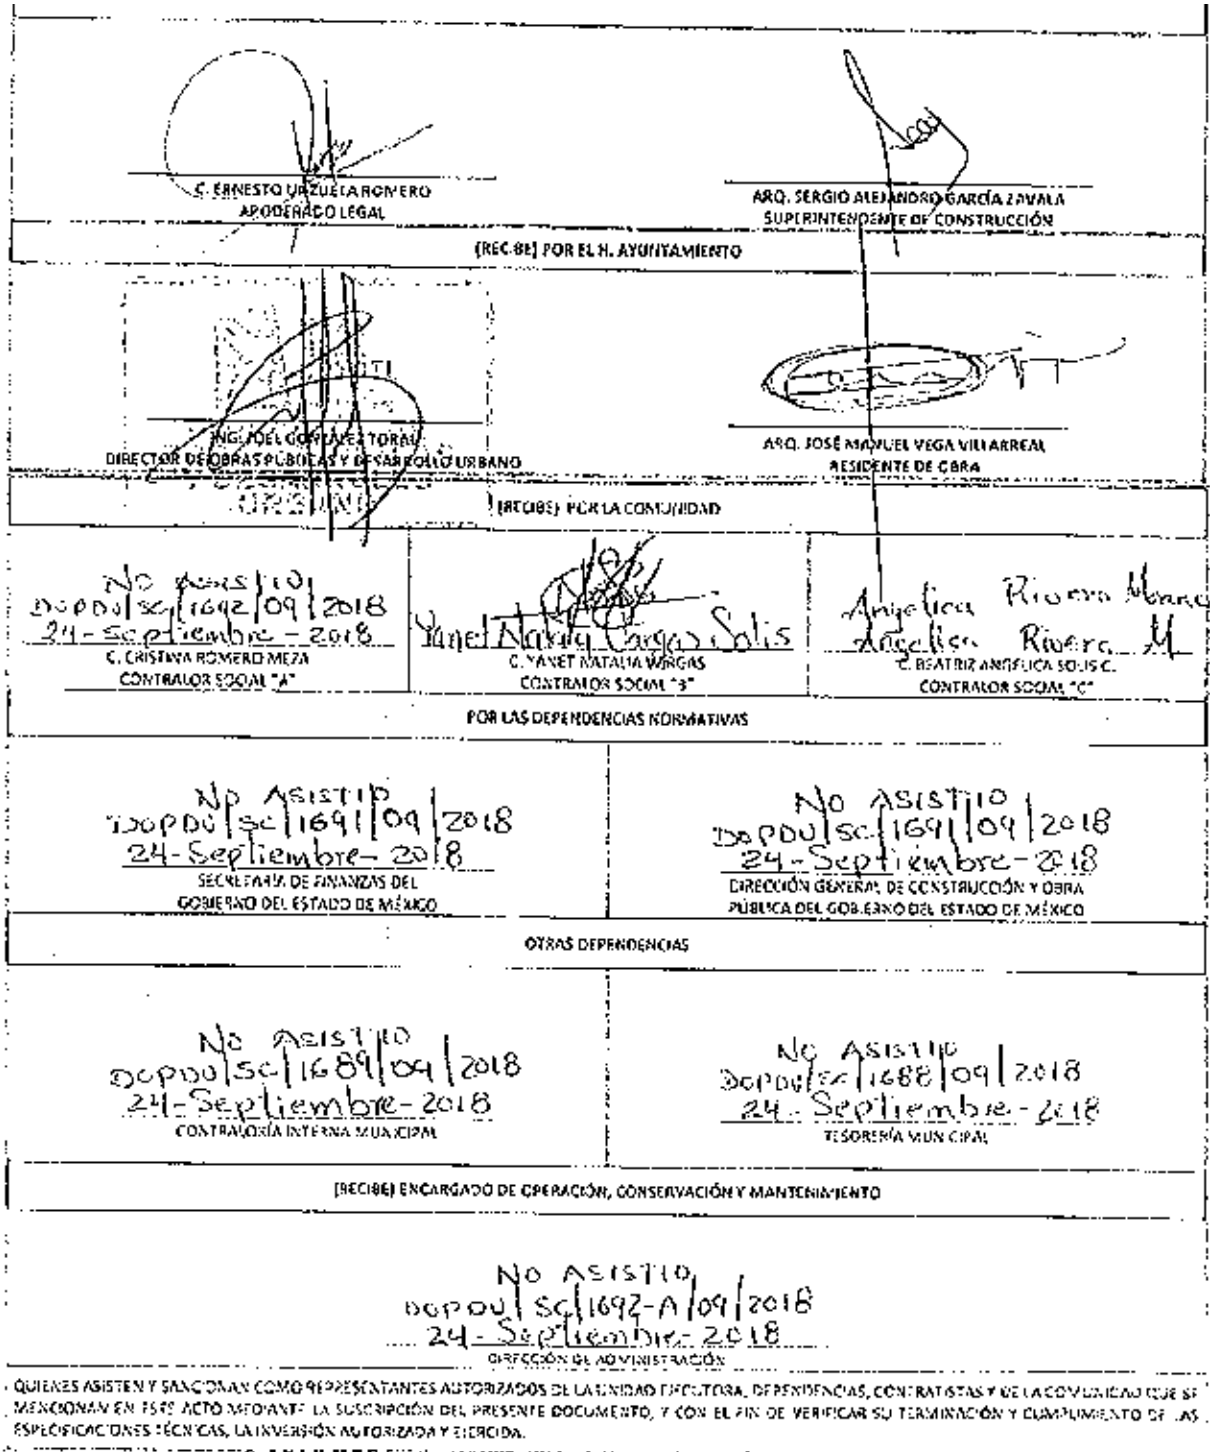 C. ERNESTO URZUETA ROMERO
APODERADO LEGAL
ARQ. SERGIO ALEJANDRO GARCÍA ZAVALA
SUPERINTENDENTE DE CONSTRUCCIÓN
(RECIBE) POR EL H. AYUNTAMIENTO
ING. JOEL GONZÁLEZ TORAL
DIRECTOR DE OBRAS PÚBLICAS Y DESARROLLO URBANO
ARQ. JOSÉ MANUEL VEGA VILLARREAL
RESIDENTE DE OBRA
(RECIBE) POR LA COMUNIDAD
NO ASISTIO
DOPDU/SC/1692/09/2018
24-Septiembre-2018
C. CRISTINA ROMERO MEZA
CONTRALOR SOCIAL "A"
Yanet Nataly Vargas Solis
C. YANET NATALIA VARGAS
CONTRALOR SOCIAL "B"
Angelica Rivera
Angelica Rivera M
C. BEATRIZ ANGÉLICA SOLIS C.
CONTRALOR SOCIAL "C"
POR LAS DEPENDENCIAS NORMATIVAS
NO ASISTIO
DOPDU/SC/1691/09/2018
24-Septiembre-2018
SECRETARÍA DE FINANZAS DEL
GOBIERNO DEL ESTADO DE MÉXICO
NO ASISTIO
DOPDU/SC/1691/09/2018
24-Septiembre-2018
DIRECCIÓN GENERAL DE CONSTRUCCIÓN Y OBRA
PÚBLICA DEL GOBIERNO DEL ESTADO DE MÉXICO
OTRAS DEPENDENCIAS
NO ASISTIO
DOPDU/SC/1689/09/2018
24-Septiembre-2018
CONTRALORÍA INTERNA MUNICIPAL
NO ASISTIO
DOPDU/SC/1688/09/2018
24-Septiembre-2018
TESORERÍA MUNICIPAL
(RECIBE) ENCARGADO DE OPERACIÓN, CONSERVACIÓN Y MANTENIMIENTO
NO ASISTIO
DOPDU/SC/1692-A/09/2018
24-Septiembre-2018
DIRECCIÓN DE ADMINISTRACIÓN
QUIENES ASISTEN Y SANCIONAN COMO REPRESENTANTES AUTORIZADOS DE LA UNIDAD EJECUTORA, DEPENDENCIAS, CONTRATISTAS Y DE LA COMUNIDAD QUE SE
MENCIONAN EN ESTE ACTO MEDIANTE LA SUSCRIPCIÓN DEL PRESENTE DOCUMENTO, Y CON EL FIN DE VERIFICAR SU TERMINACIÓN Y CUMPLIMIENTO DE LAS
ESPECIFICACIONES TÉCNICAS, LA INVERSIÓN AUTORIZADA Y EJERCIDA.